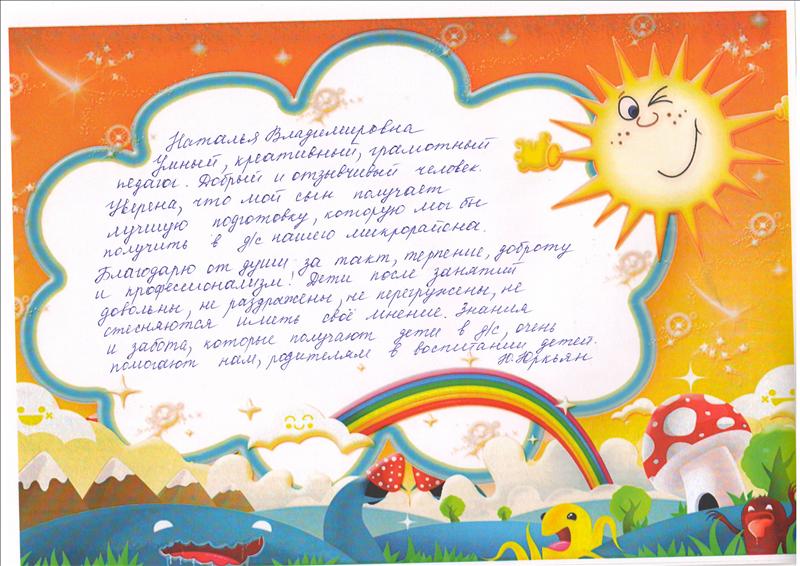 Наталья Владимировна
Умный, креативный, грамотный
педагог. Добрый и отзывчивый человек.
Уверена, что мой сын получает
лучшую подготовку, которую мог бы
получить в д/с нашего микрорайона.
Благодарю от души за такт, терпение, доброту
и профессионализм! Дети после занятий
довольны, не раздражены, не перегружены, не
стесняются иметь своё мнение. Знания
и забота, которые получают дети в д/с, очень
помогают нам, родителям в воспитании детей.
Н. Юркьян